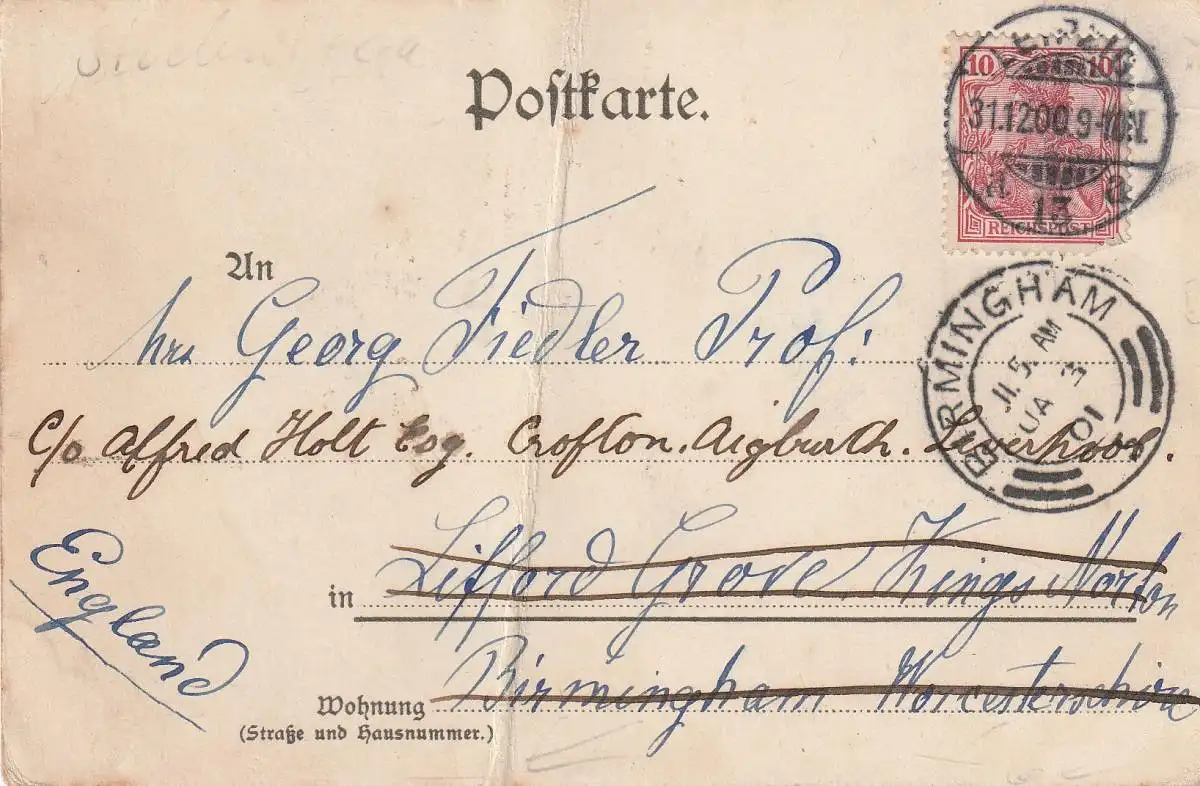 Postkarte.
10 10
REICHSPOST
LEIPZIG
31.12.00.9-10.N.
13
a
BIRMINGHAM
11.5. AM
JA 3
01
An
Hrs Georg Fiedler Prof:
c/o Alfred Holt Esq. Crofton. Aigburth. Liverpool.
England
in Lifford Grove. Kings Norton
Wohnung Birmingham Worcesterschire
(Straße und Hausnummer.)